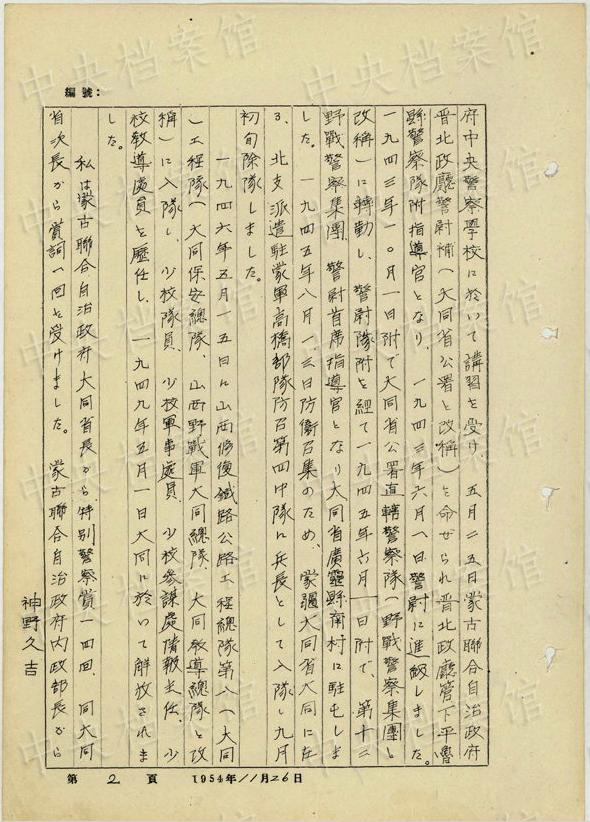 編號:
府中央警察學校に於いて講習を受け、五月二五日蒙古聯合自治政府
晋北政廳警尉補(大同省公署と改稱)を命ぜられ晋北政廳管下平魯
縣警察隊附指導官となり、一九四三年六月一日警尉に進級しました。
一九四三年一〇月一日附で大同省公署直轄警察隊(野戰警察集團と
改稱)に轉勤し、警尉隊附を経て一九四五年六月一日附で、第十二
野戰警察集團、警尉首席指導官となり大同省廣靈縣南村に駐屯しま
した。一九四五年八月一三日防衛召集のため、蒙疆大同省大同に在
る、北支派遣駐蒙軍高橋部隊防召第四中隊に兵長として入隊し九月
初旬除隊しました。
一九四六年五月一五日に山西修復鐵路公路工程總隊第八(大同
)工程隊(大同保安總隊、山西野戰軍大同總隊、大同教導總隊と改
稱)に入隊し、少校隊員、少校軍事處員、少校參謀處情報主任、少
校教導處員を歴任し、一九四九年五月一日大同に於いて解放されま
した。
私は蒙古聯合自治政府大同省長から特別警察賞一四回、同大同
省次長から賞詞一回を受けました。蒙古聯合自治政府内政部長から
神野久吉
第 2 頁 1954年11月26日
中央档案馆